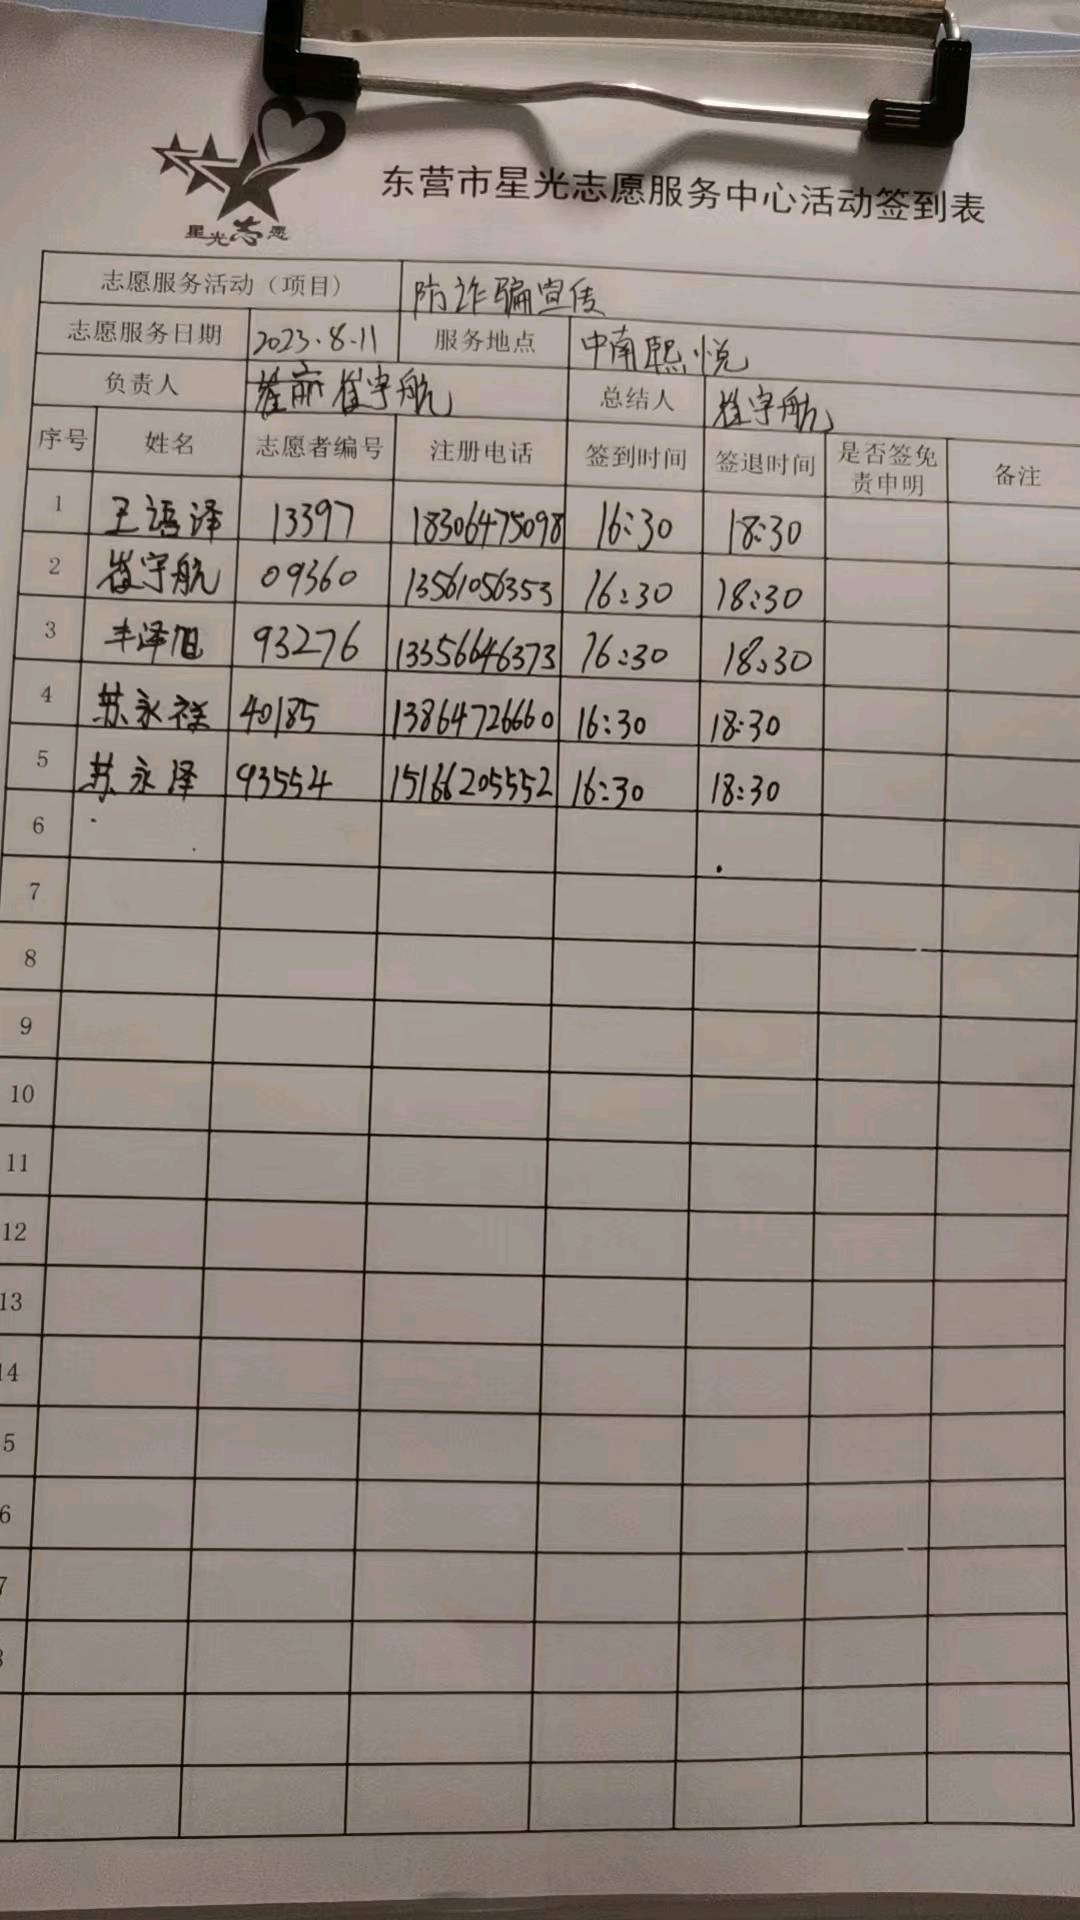 东营市星光志愿服务中心活动签到表
星光志愿
志愿服务活动（项目） 防诈骗宣传
志愿服务日期 2023.8.11 服务地点 中南熙悦
负责人 崔宇航 总结人 崔宇航
序号 姓名 志愿者编号 注册电话 签到时间 签退时间 是否签免责申明 备注
1 王语泽 13397 18306475098 16:30 18:30
2 崔宇航 09360 13561056353 16:30 18:30
3 丰泽旭 93276 13356646373 16:30 18:30
4 苏永祥 40185 13864726660 16:30 18:30
5 苏永泽 93554 15166205552 16:30 18:30
6
7
8
9
10
11
12
13
14
5
6
7
8